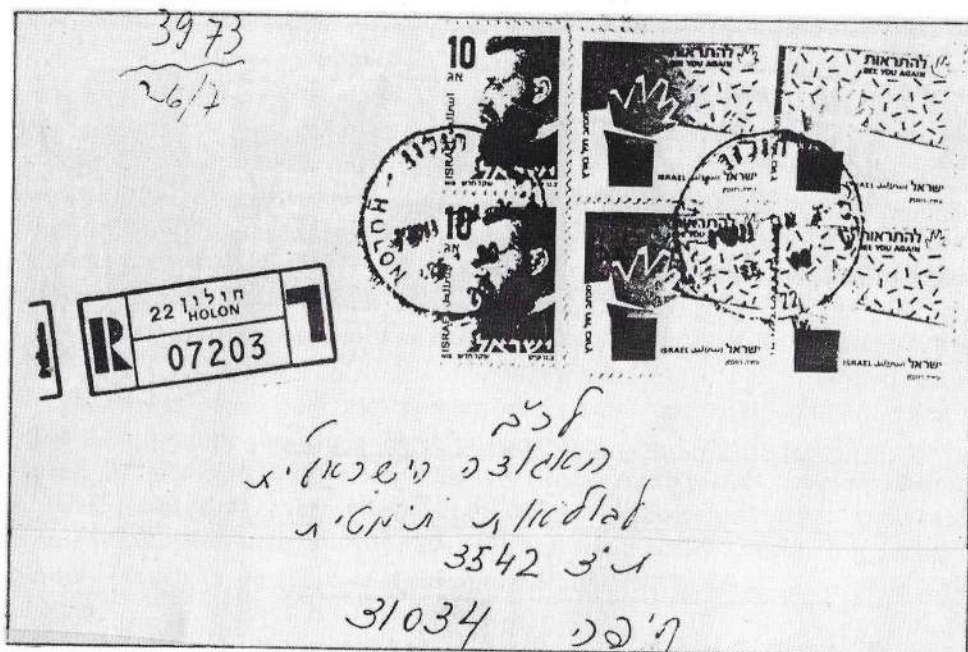 3973
26/7
10
אג
ISRAEL
ישראל
10
אג
ISRAEL
ישראל
להתראות
SEE YOU AGAIN
ישראל ISRAEL
להתראות
SEE YOU AGAIN
ישראל ISRAEL
להתראות
SEE YOU AGAIN
ישראל ISRAEL
להתראות
SEE YOU AGAIN
ישראל ISRAEL
חולון - HOLON
חולון
22
R
חולון 22
HOLON
07203
ר
לכ"ב
האגודה הישראלית
לבולאות תימטית
ת"ד 3542
חיפה 31034